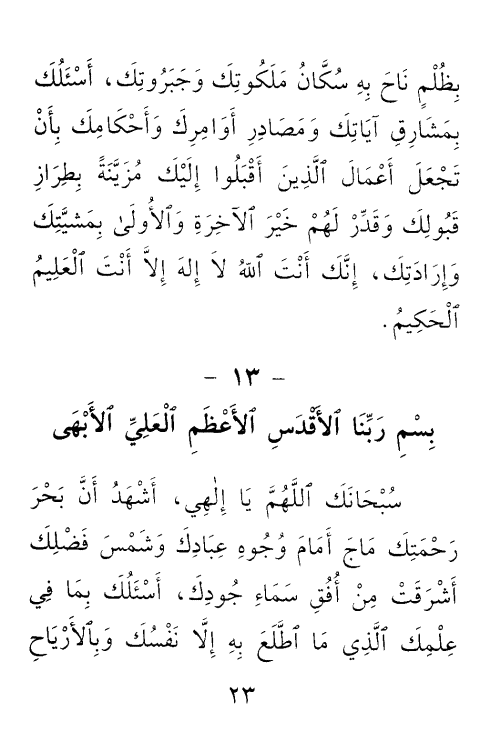 بِظُلْمٍ نَاحَ بِهِ سُكَّانُ مَلَكُوتِكَ وَجَبَرُوتِكَ، أَسْئَلُكَ
بِمَشَارِقِ آيَاتِكَ وَمَصَادِرِ أَوَامِرِكَ وَأَحْكَامِكَ بِأَنْ
تَجْعَلَ أَعْمَالَ ٱلَّذِينَ أَقْبَلُوا إِلَيْكَ مُزَيَّنَةً بِطِرَازِ
قَبُولِكَ وَقَدِّرْ لَهُمْ خَيْرَ ٱلآخِرَةِ وَٱلأُولَىٰ بِمَشِيَّتِكَ
وَإِرَادَتِكَ، إِنَّكَ أَنْتَ ٱللهُ لاَ إِلهَ إِلاَّ أَنْتَ ٱلْعَلِيمُ
ٱلْحَكِيمُ.
– ١٣ –
بِسْمِ رَبِّنَا ٱلأَقْدَسِ ٱلأَعْظَمِ ٱلْعَلِيِّ ٱلأَبْهَى
سُبْحَانَكَ ٱللَّهُمَّ يَا إِلٰهِي، أَشْهَدُ أَنَّ بَحْرَ
رَحْمَتِكَ مَاجَ أَمَامَ وُجُوهِ عِبَادِكَ وَشَمْسَ فَضْلِكَ
أَشْرَقَتْ مِنْ أُفُقِ سَمَاءِ جُودِكَ، أَسْئَلُكَ بِمَا فِي
عِلْمِكَ ٱلَّذِي مَا ٱطَّلَعَ بِهِ إِلَّا نَفْسُكَ وَبِٱلأَرْيَاحِ
٢٣